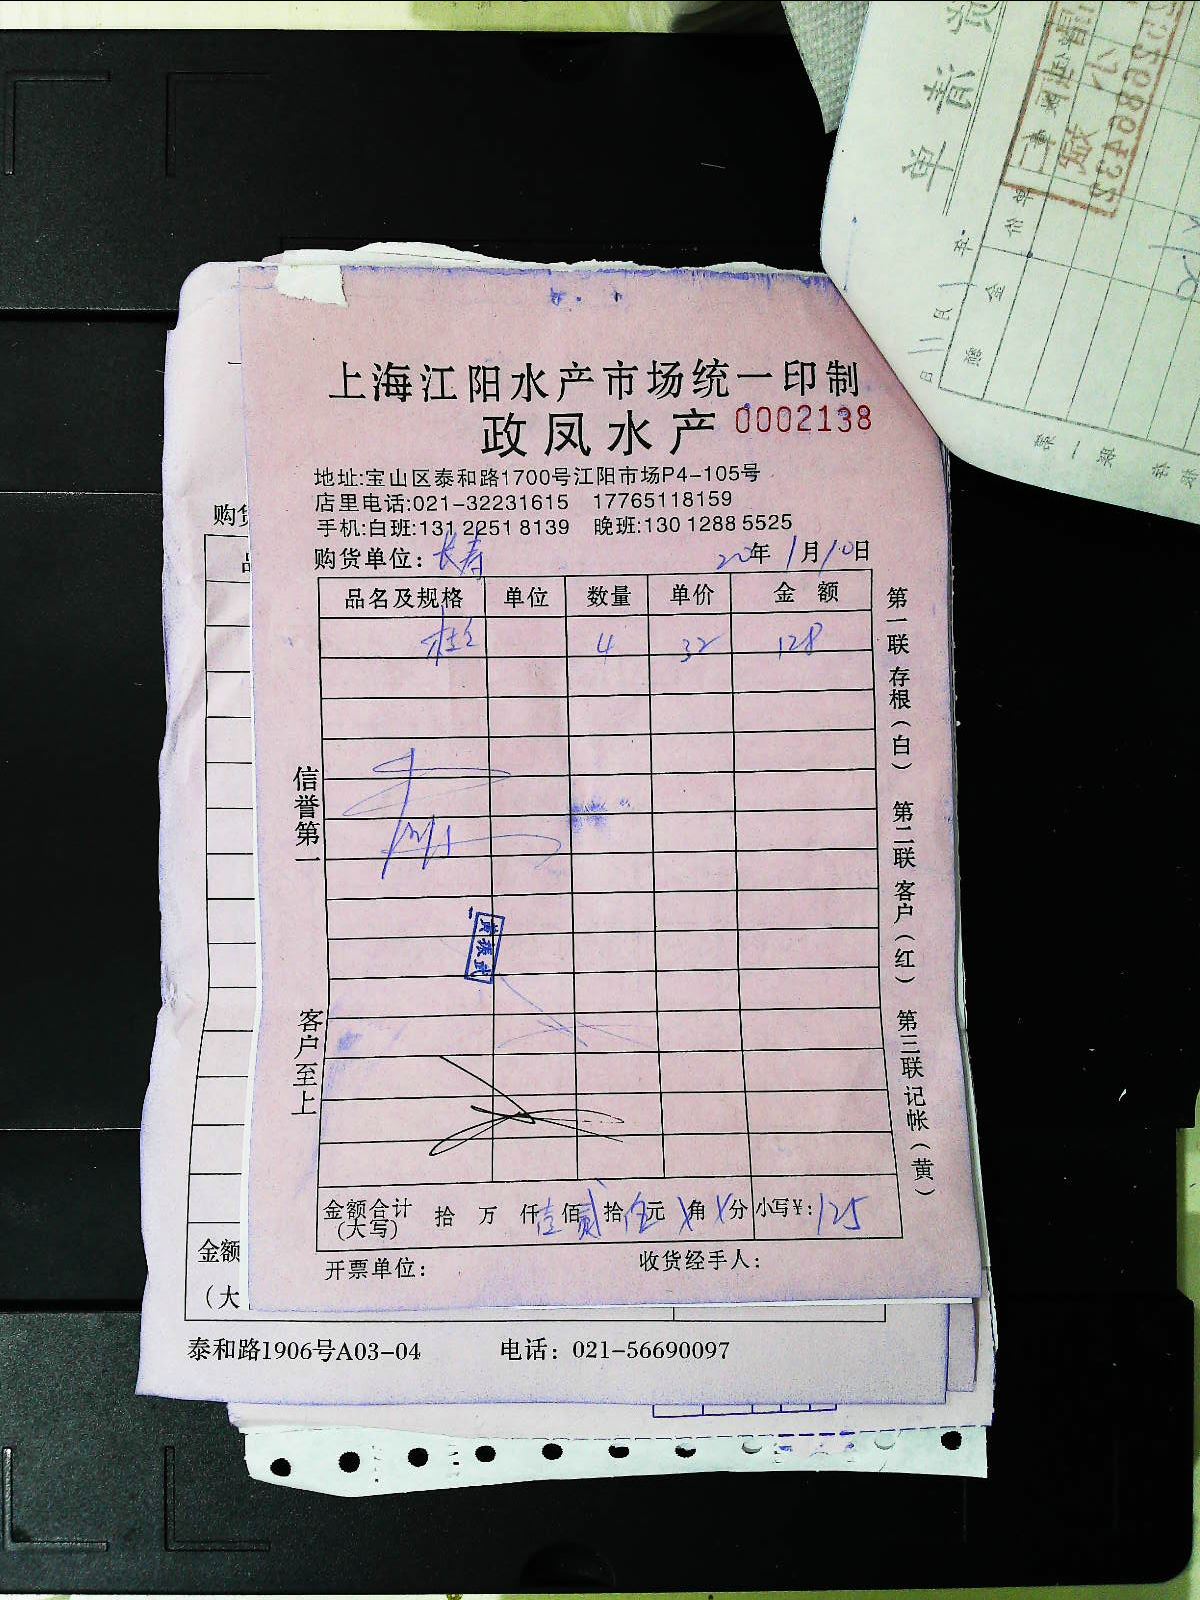 上海江阳水产市场统一印制
政凤水产 0002138
地址:宝山区泰和路1700号江阳市场P4-105号
店里电话:021-32231615 17765118159
手机:白班:131 2251 8139 晚班:130 1288 5525
购货单位: 长寿 20年1月10日
品名及规格 单位 数量 单价 金额
4 32 128
信誉第一
客户至上
黄振武
第一联 存根(白) 第二联 客户(红) 第三联 记帐(黄)
金额合计(大写) 拾 万 仟 壹佰 贰拾 伍元 角 分 小写¥: 125
开票单位: 收货经手人:
购货
金额
(大
泰和路1906号A03-04 电话: 021-56690097